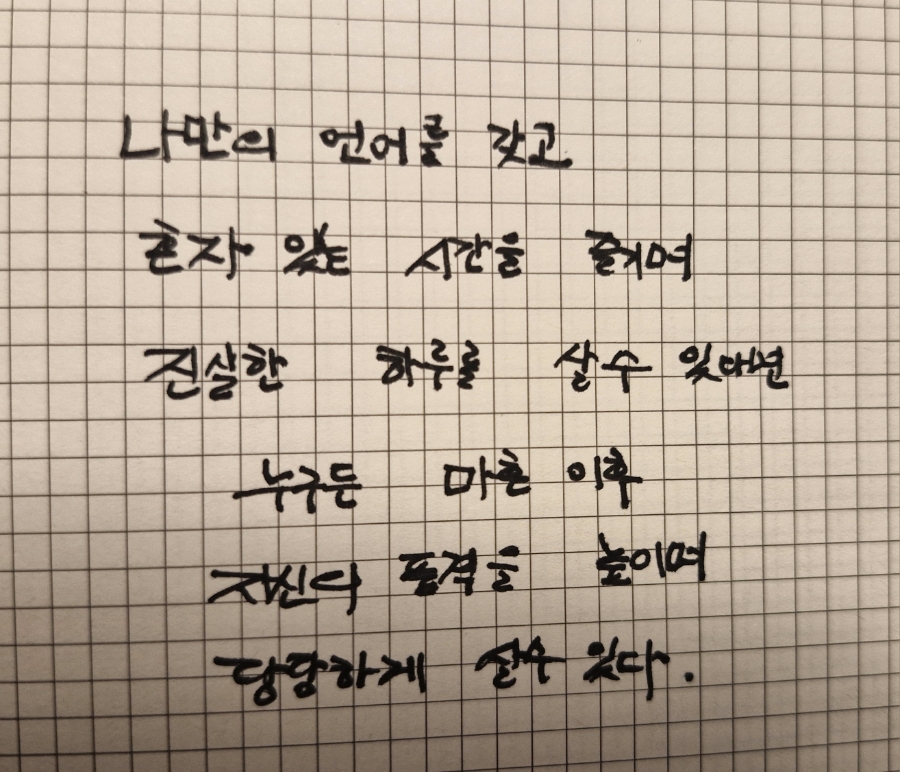 나만의 언어를 갖고
혼자 있는 시간을 즐기며
진실한 하루를 살수 있다면
누구든 마흔 이후
품격을 높이며
당당하게 살수 있다.